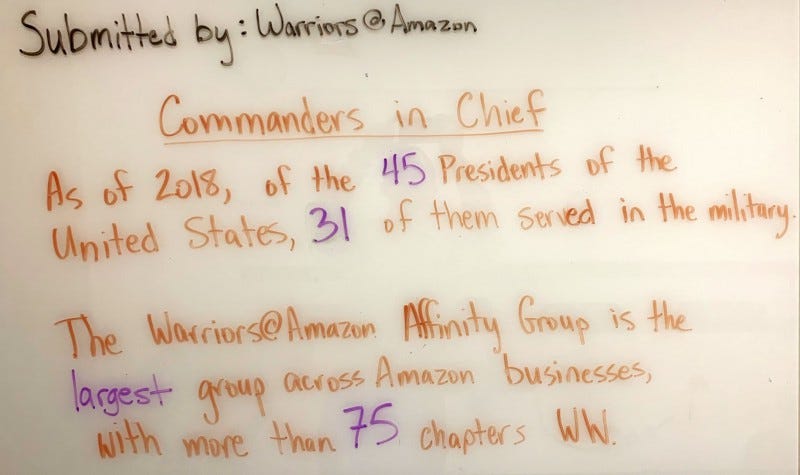 Submitted by: Warriors@Amazon
Commanders in Chief
As of 2018, of the 45 Presidents of the
United States, 31 of them served in the military.
The Warriors@Amazon Affinity Group is the
largest group across Amazon businesses,
with more than 75 chapters WW.